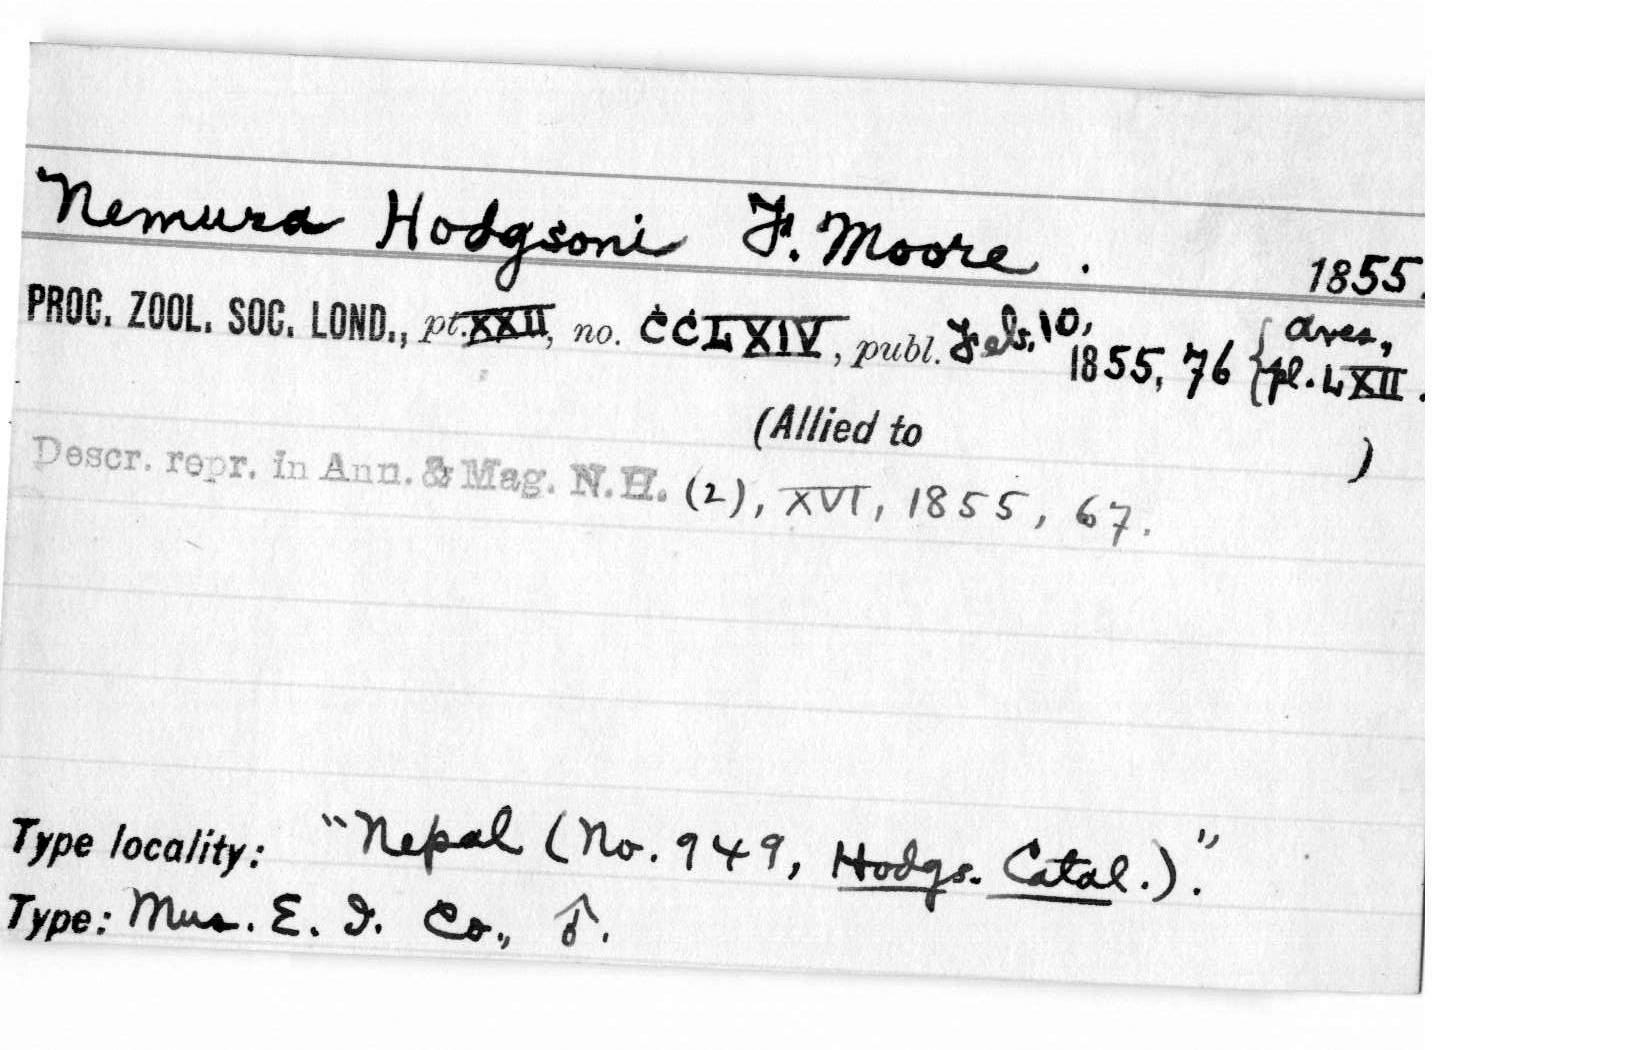 Nemura Hodgsoni F. Moore. 1855.
PROC. ZOOL. SOC. LOND., pt. XXII, no. CCLXIV, publ. Feb. 10, 1855, 76 { Aves, pl. LXII.
(Allied to )
Descr. repr. in Ann. & Mag. N.H. (2), XVI, 1855, 67.
Type locality: "Nepal (No. 949, Hodgs. Catal.)."
Type: Mus. E. I. Co., ♂.